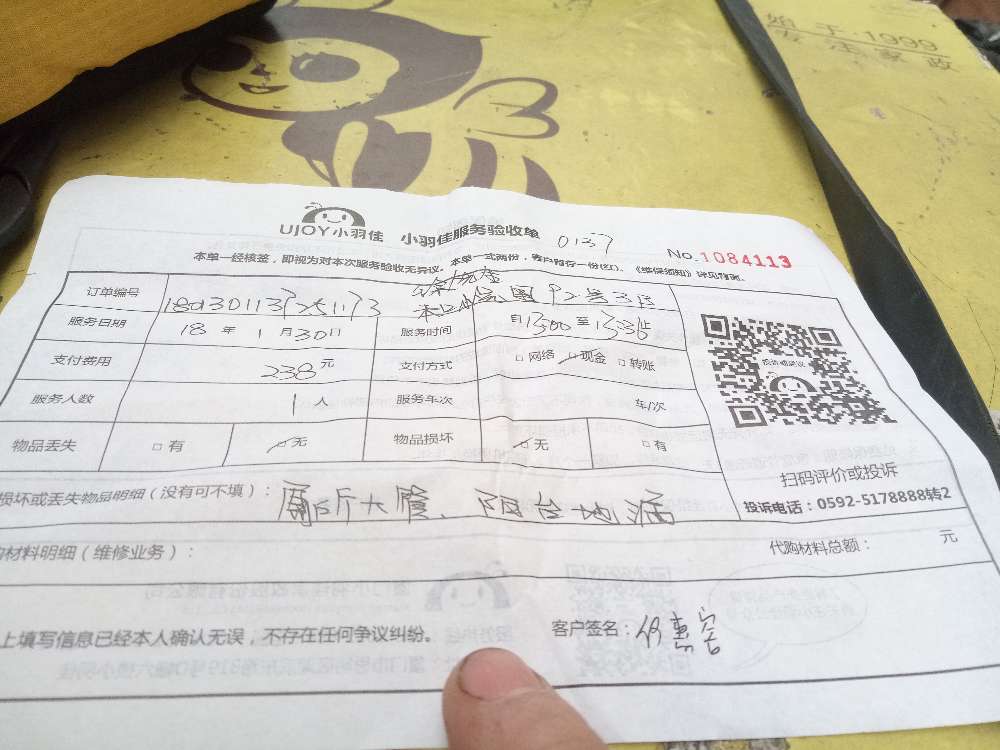 始于·1999
专注家政
UJOY小羽佳 小羽佳服务验收单 0137
No.1084113
本单一经核签，即视为对本次服务验收无异议。本单一式两份，客户留存一份(红)。《维保须知》详见背面。
订单编号
服务日期 18 年 1 月 30 日 服务时间 自 13:00 至
支付费用 238 元 支付方式 □ 网络 □ 现金 □ 转账
服务人数 1 服务车次 车/次
物品丢失 □ 有 □ 无 物品损坏 □ 无 □ 有
扫码评价或投诉
投诉电话：0592-5178888转2
损坏或丢失物品明细（没有可不填）： 阳台地漏
材料明细（维修业务）： 代购材料总额： 元
上填写信息已经本人确认无误，不存在任何争议纠纷。 客户签名：